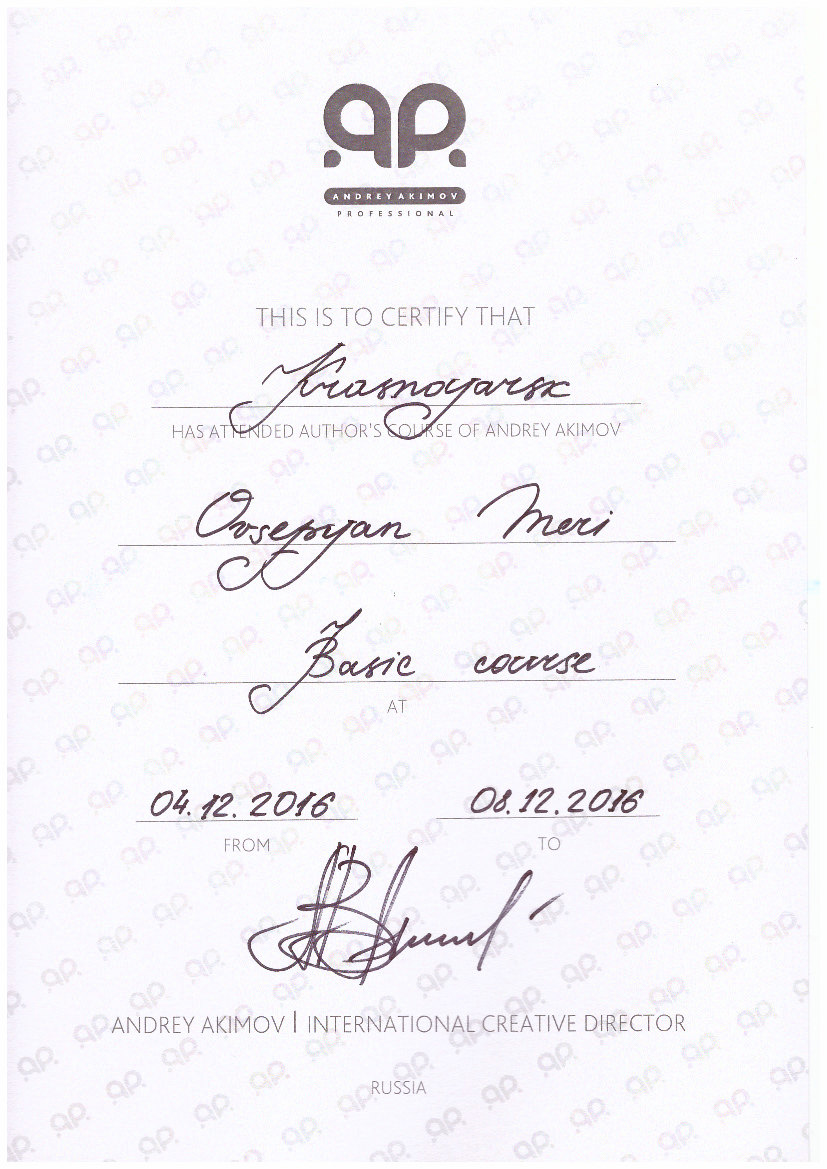 ap.
ANDREY AKIMOV
PROFESSIONAL
THIS IS TO CERTIFY THAT
Krasnoyarsk
HAS ATTENDED AUTHOR'S COURSE OF ANDREY AKIMOV
Ovsepyan Meri
Basic course
AT
04.12.2016 08.12.2016
FROM TO
ANDREY AKIMOV | INTERNATIONAL CREATIVE DIRECTOR
RUSSIA